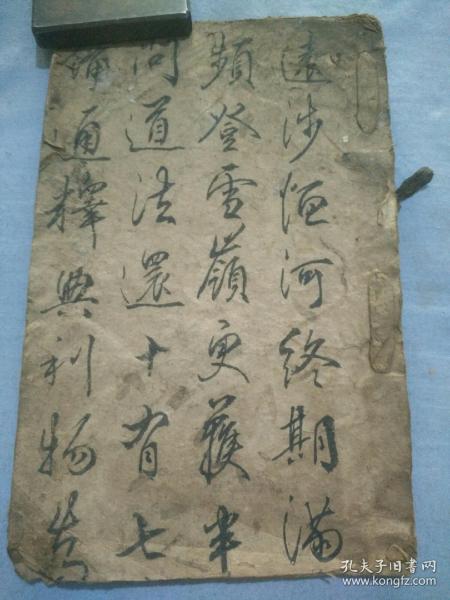 遠涉恒河終期滿
頻登雪嶺更獲半
問道法還十有七
備通釋典利物為
孔夫子旧书网
www.kongfz.com